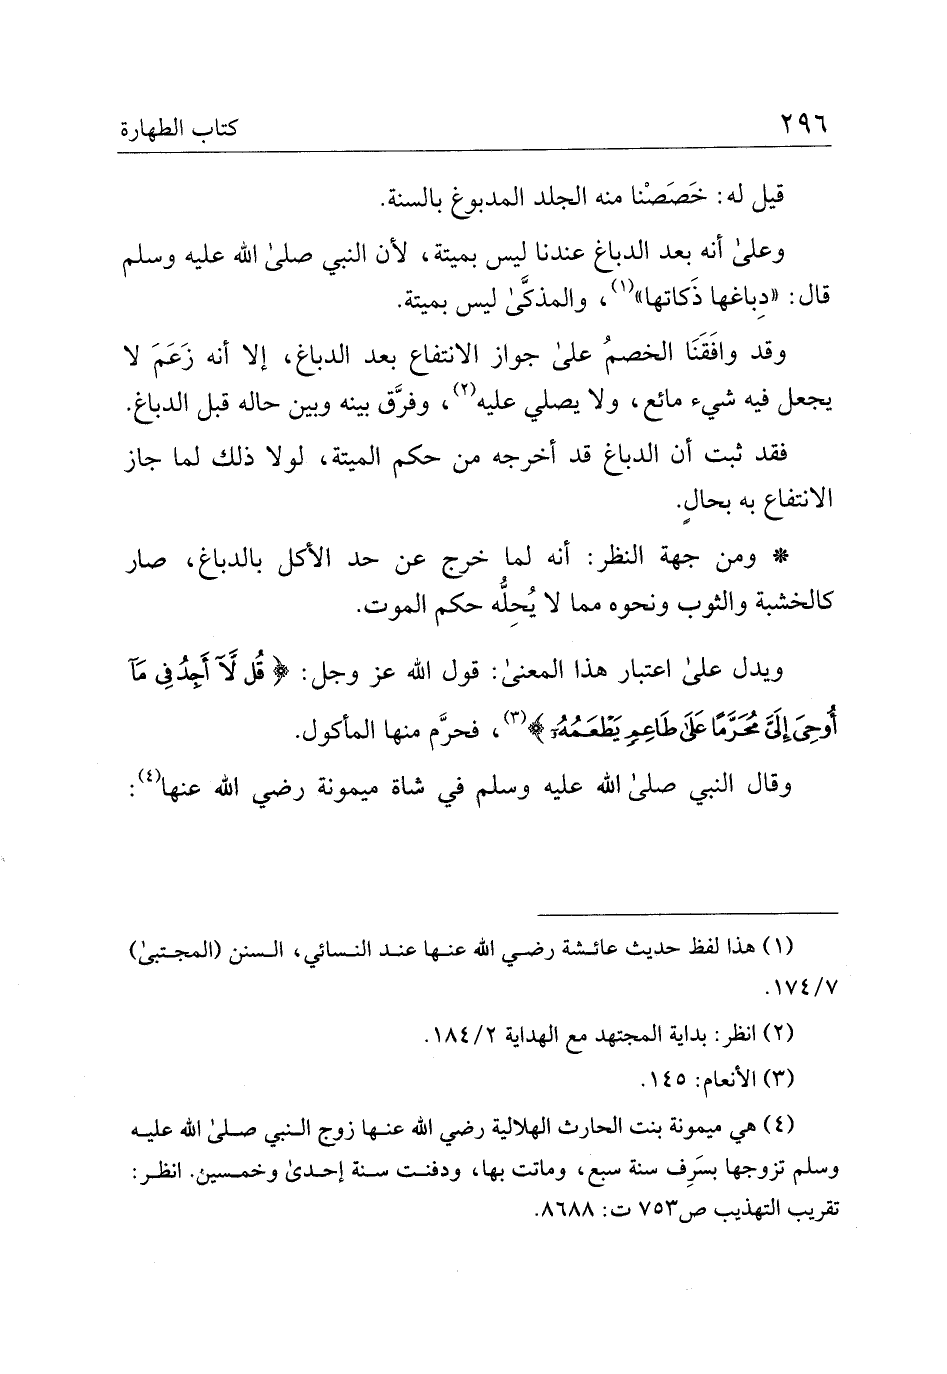 ٢٩٦ كتاب الطهارة
قيل له: خَصَصْنا منه الجلد المدبوغ بالسنة.
وعلىٰ أنه بعد الدباغ عندنا ليس بميتة، لأن النبي صلىٰ الله عليه وسلم
قال: «دِباغها ذَكاتها»(١)، والمذكَّىٰ ليس بميتة.
وقد وافَقَنَا الخصمُ علىٰ جواز الانتفاع بعد الدباغ، إلا أنه زَعَمَ لا
يجعل فيه شيء مائع، ولا يصلي عليه(٢)، وفرَّق بينه وبين حاله قبل الدباغ.
فقد ثبت أن الدباغ قد أخرجه من حكم الميتة، لولا ذلك لما جاز
الانتفاع به بحالٍ.
* ومن جهة النظر: أنه لما خرج عن حد الأكل بالدباغ، صار
كالخشبة والثوب ونحوه مما لا يُحِلُّه حكم الموت.
ويدل علىٰ اعتبار هذا المعنىٰ: قول الله عز وجل: ﴿قُل لَّآ أَجِدُ فِى مَآ
أُوحِىَ إِلَىَّ مُحَرَّمًا عَلَىٰ طَاعِمٍ يَطْعَمُهُۥٓ﴾(٣)، فحرَّم منها المأكول.
وقال النبي صلىٰ الله عليه وسلم في شاة ميمونة رضي الله عنها(٤):
(١) هذا لفظ حديث عائشة رضي الله عنها عند النسائي، السنن (المجتبىٰ)
١٧٤/٧.
(٢) انظر: بداية المجتهد مع الهداية ١٨٤/٢.
(٣) الأنعام: ١٤٥.
(٤) هي ميمونة بنت الحارث الهلالية رضي الله عنها زوج النبي صلىٰ الله عليه
وسلم تزوجها بسَرِف سنة سبع، وماتت بها، ودفنت سنة إحدىٰ وخمسين. انظر:
تقريب التهذيب ص٧٥٣ ت: ٨٦٨٨.